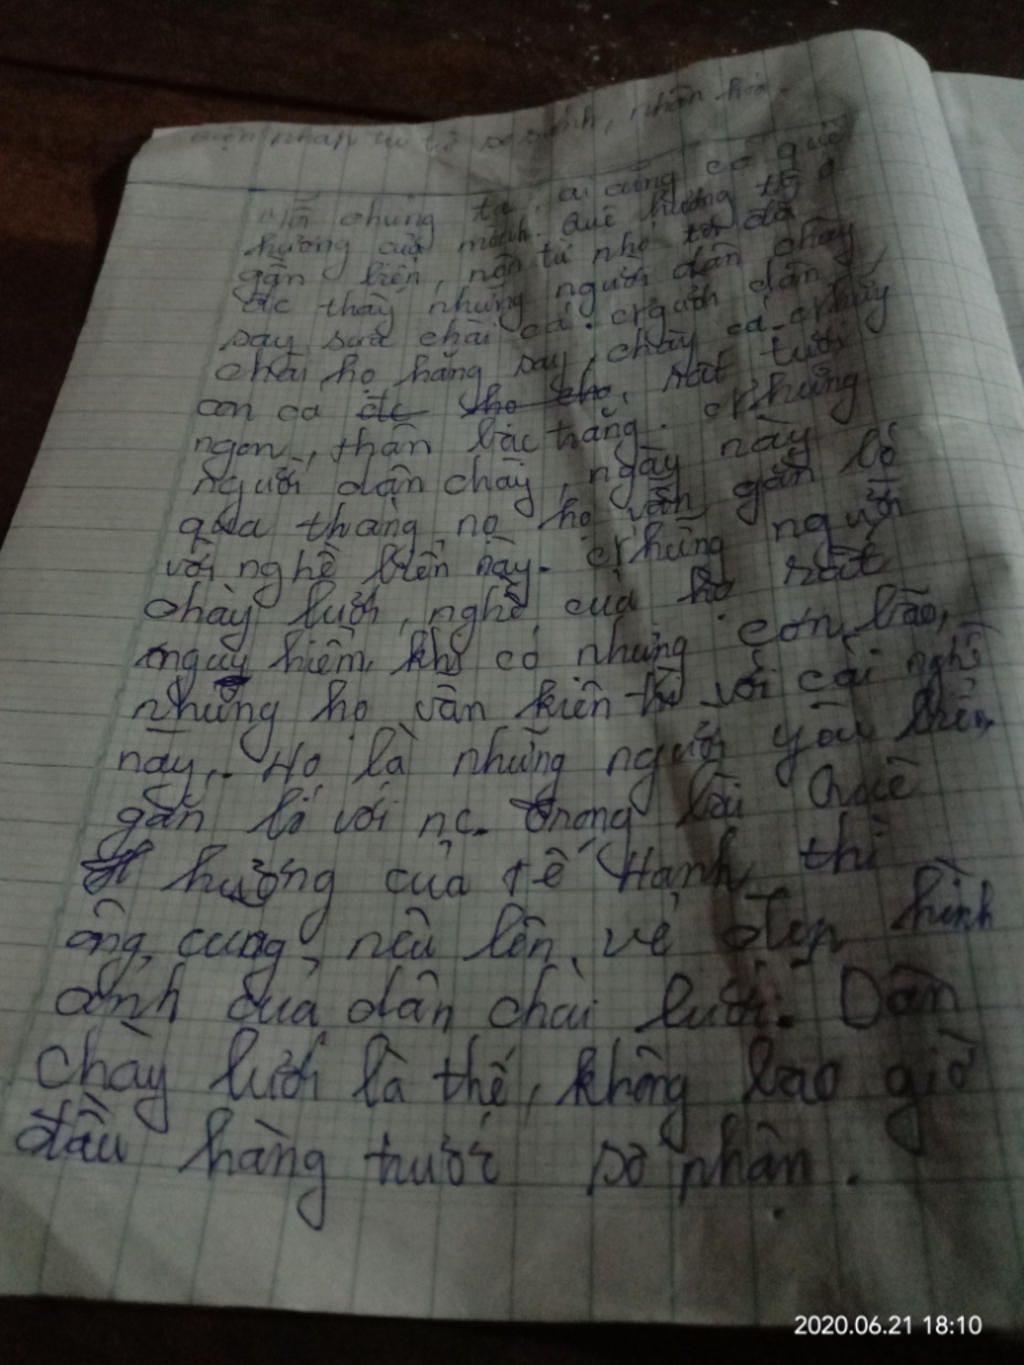 nhân hóa.
chúng ta, ai cũng có quê
hương của mình. Quê hương tôi ở
gần biển, nên từ nhỏ tôi đã
đc thấy những người dân chày
say sưa chài cá. Người dân
chài họ hăng say, chày cá. Thấy
con cá rất tươi
ngon, thân bạc trắng. Những
người dân chày, ngày này
qua tháng nọ họ vẫn gắn bó
với nghề biển này. Những người
chày lưới, nghề của họ rất
nguy hiểm, khi có những cơn bão,
nhưng họ vẫn kiên trì với cái nghề
này. Họ là những người yêu biển,
gắn bó với nc. Trong bài Quê
hương của Tế Hanh, thì
ông cung nêu lên vẻ đẹp hình
ảnh của dân chài lưới. Dân
chày lưới là thế, không bao giờ
đầu hàng trước số phận.
2020.06.21 18:10